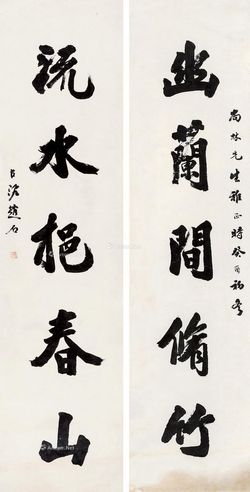 尚林先生雅正時癸酉初冬
幽蘭間脩竹
流水挹春山
古泥趙石